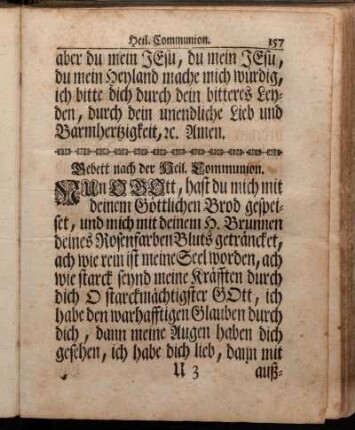 Heil. Communion. 157
aber du mein JEsu, du mein JEsu,
du mein Heyland mache mich würdig,
ich bitte dich durch dein bitteres Ley-
den, durch dein unendliche Lieb und
Barmhertzigkeit, ꝛc. Amen.
Gebett nach der Heil. Communion.
NUn O GOtt, hast du mich mit
deinem Göttlichen Brod gespei-
set, und mich mit deinem H. Brunnen
deines Rosenfarben Bluts geträncket,
ach wie rein ist meine Seel worden, ach
wie starck seynd meine Kräfften durch
dich O starckmächtigster GOtt, ich
habe den warhafftigen Glauben durch
dich, dann meine Augen haben dich
gesehen, ich habe dich lieb, dann mit
U 3 auß-